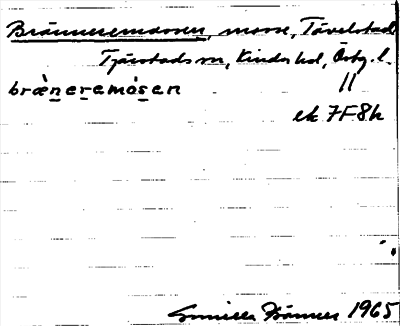 Bränneremossen, mosse, Tävelstad
Tjärstads sn, Kinds hd, Östg. l.
bræ̀neramòsen //
ek 7F8h
Gunilla Brännes 1965